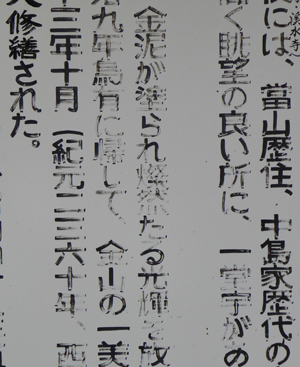 には、當山歴住、中島家歴代の
く眺望の良い所に、一堂宇が
金泥が塗られ燦然たる光輝を放
九年烏有に帰して、金山の一美
十三年十月（紀元二三六十年、西
修繕された。